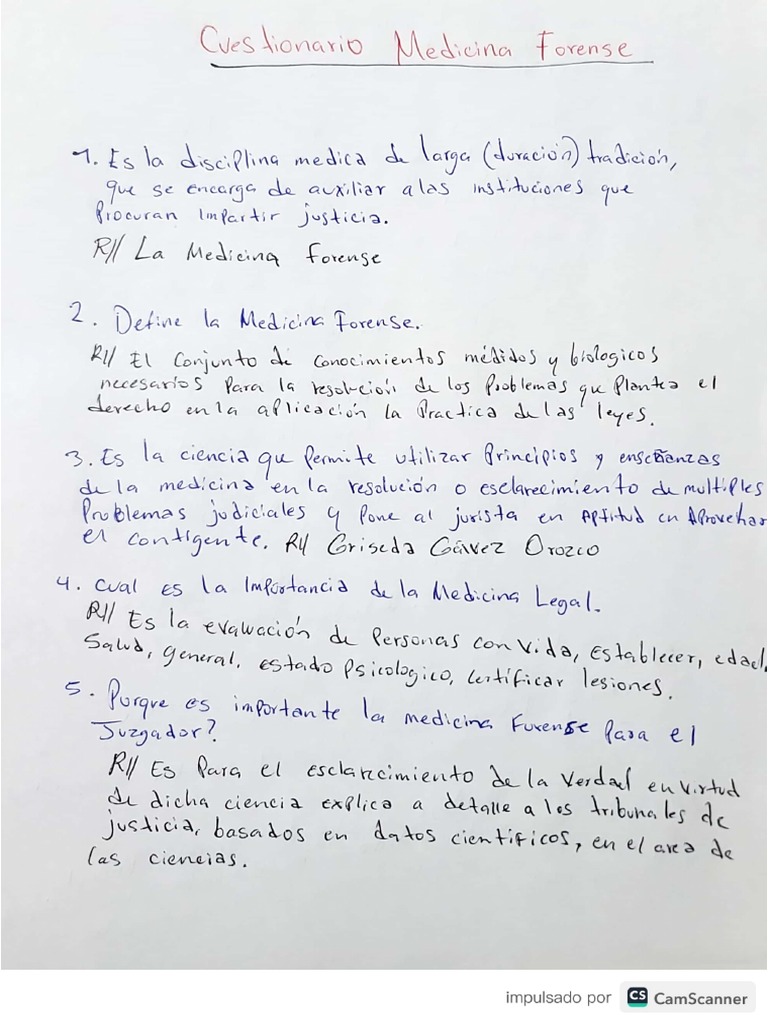 Cuestionario Medicina Forense
1. Es la disciplina medica de larga (duración) tradición,
que se encarga de auxiliar a las instituciones que
Procuran Impartir justicia.
R// La Medicina Forense
2. Define la Medicina Forense.
R// El Conjunto de Conocimientos médidos y biologicos
necesarios Para la resolución de los Problemas que Plantea el
derecho en la aplicación la Practica de las leyes.
3. Es la ciencia que Permite utilizar Principios y enseñanzas
de la medicina en la resolución o esclarecimiento de multiples
Problemas judiciales y Pone al jurista en Aptitud en Aprovechar
el contigente. R// Griseda Gávez Orozco
4. Cual es la Importancia de la Medicina Legal.
R// Es la evaluación de Personas con vida, establecer, edad,
Salud, general, estado Psicologico, certificar lesiones.
5. Porque es importante la medicina Forense Para el
Juzgador?
R// Es Para el esclarecimiento de la Verdad en virtud
de dicha ciencia explica a detalle a los tribunales de
justicia, basados en datos cientificos, en el area de
las ciencias.
impulsado por CS CamScanner